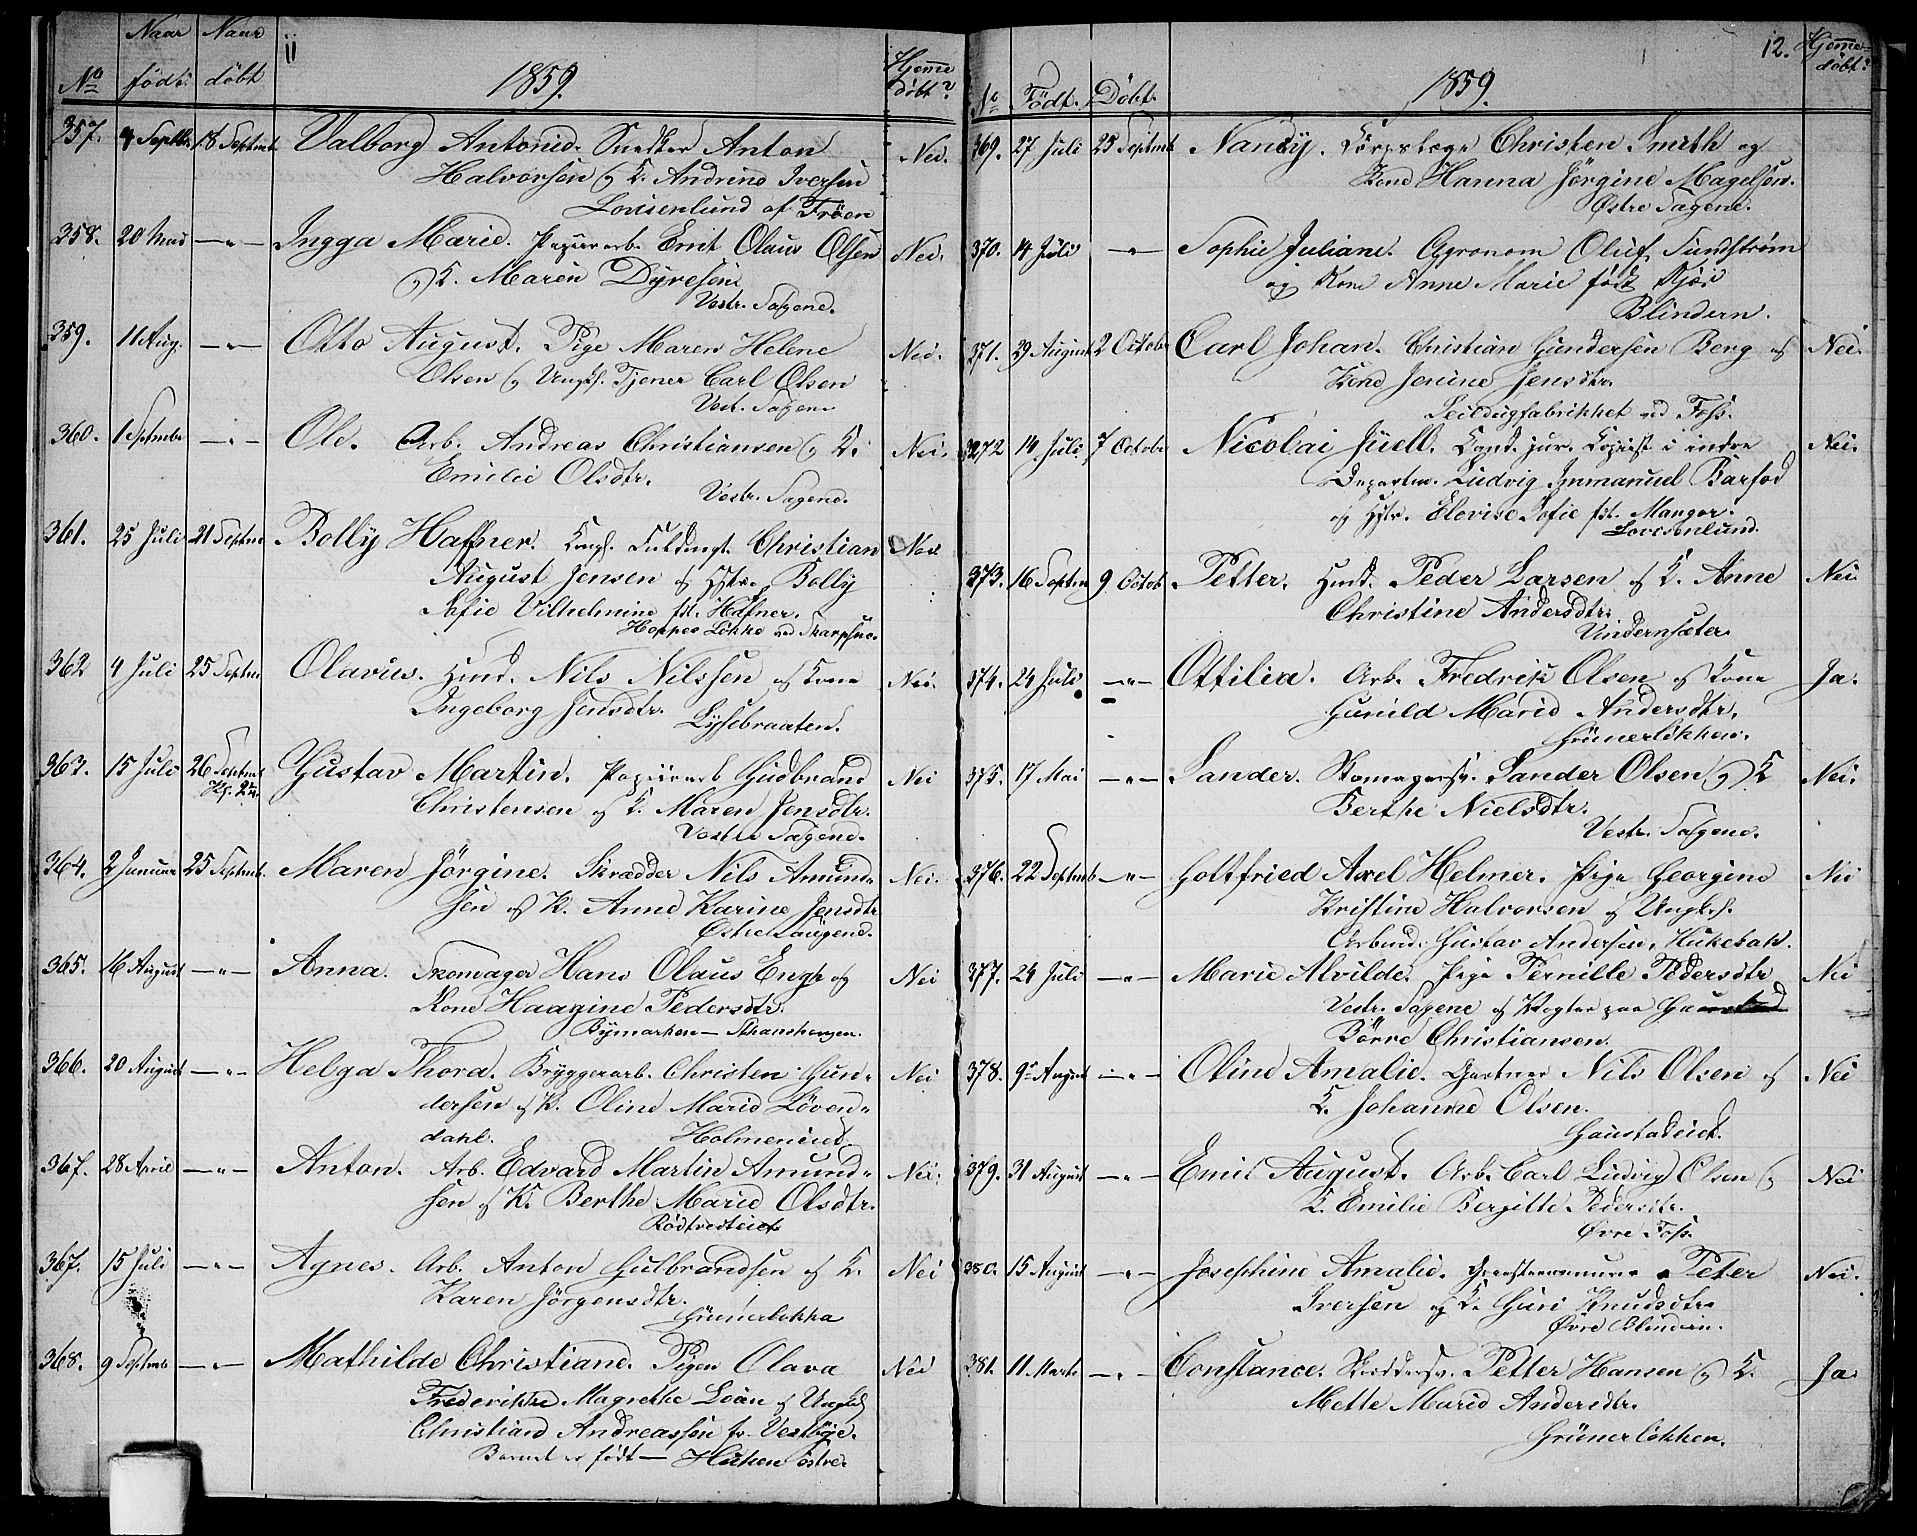 Naar Naar 11 Hjemme-
No født. døbt 1859. døbt?
357. 4 Septbr. 18 Septembr Valborg Antonie. Snedker Anton Nei.
Halvorsen og K. Andrine Iversen
Lovisenlund af Frøen
358. 20 Mai —"— Ingga Marie. Papirarb. Emt Olaus Olsen Nei.
og K. Maren Dyresen
Vestr. Sagene.
359. 11 Aug. —"— Otto August. Pige Maren Helene Nei.
Olsen og Ungk. Tjener Carl Olsen
Vest. Sagene
360. 1 Septembr —"— Ole. Arb. Andreas Christiansen og K. Nei.
Emilie Olsdtr.
Vestr. Sagene.
361. 25 Juli 21 Septem Bolly Haffner. Kongl. Fuldmgt. Christian Nei
August Jensen og Hstr. Bolly
Sofie Vilhelmine fdt. Hafner.
Hoppes Løkke ved Skarpsno.
362 4 Juli 25 Septem Olavus. Husm. Nils Nilssen og Kone Nei.
Ingeborg Jensdtr. Lysebraaten.
363. 15 Juli 26 Septemb Gustav Martin. Papirarb Gudbrand Nei
Christensen og K. Maren Jensdtr.
Vestre Sagene.
364. 2 Januar 25 Septemb. Maren Jørgine. Skrædder Nils Amund- Nei.
sen og K. Anne Karine Jensdtr
Østre Saugene.
365. 16 August —"— Anna. Skomager Hans Olaus Engh og Nei
Kone Haagine Pedersdtr.
Bymarken — Skanshaugen.
366. 20 August —"— Helga Thora. Bryggerarb. Christen Gun- Nei
dersen og K. Oline Marie Løven-
dahl. Holmeneiet
367. 28 April —"— Anton. Arb. Edvard Martin Amund- Nei.
sen og K. Berthe Marie Olsdtr.
Rödtvedteiet
367. 15 Juli —"— Agnes. Arb. Anton Gulbrandsen og K. Nei
Karen Jørgensdtr.
Grünerløkka
368. 9 Septembr —"— Mathilde Christiane. Pigen Olava Nei
Frederikke Magrethe Loän og Ungkl
Christian Andreassen fr. Vestbye.
Barnet er født — Huken Østre.
12. Hjemme-
No Født. Døbt. 1859. døbt?
369. 27 Juli 25 Septemb Nancy. Korpslæge Christen Smith og
Kone Hanna Jörgine Magelsen.
Østre Sagene.
370. 14 Juli —"— Sophie Juliane. Agronom Oluf Sundström
og Kone Anne Marie født Kjöi
Blindern.
371. 29 August 2 Octobr Carl Johan. Christian Gundersen Berg og Nei.
Kone Jenine Jensdtr.
Seildugfabrikket ved Foss.
372 14 Juli 7 Octobr Nicolai Juell. Cand. jur. Copist i indre Nei.
Departem. Ludvig Immanuel Barfod
og Hstr. Elovise Sofie fdt. Mangor.
Lovisenlund.
373. 16 Septem 9 Octobr Petter. Husm. Peder Larsen og K. Anne Nei
Christine Andersdtr.
Vindernsæter.
374. 24 Juli —"— Ottilia. Arb. Fredrik Olsen og Kone Ja.
Gunild Marie Andersdtr.
Grünerløkken.
375. 17 Mai —"— Sander. Skomagersv. Sander Olsen og K Nei.
Berthe Nielsdtr.
Vestr. Sagene.
376. 22 Septemb —"— Gottfried Axel Helmer. Pige Georgine Nei
Kristine Halvorsen og Ungk.
Arbmd. Gustav Andersen, Hukebak.
377. 24 Juli —"— Marie Alvilde. Pige Pernille Pedersdtr Nei
Vestr. Sagene og Vogter paa Gaustad
Börre Christiansen.
378. 9 August —"— Oline Amalie. Gartner Nils Olsen og Nei
K. Johanne Olsen.
Gaustadeiet.
379. 31 August —"— Emil August. Arb. Carl Ludvig Olsen og Nei
K. Emilie Bergitte Pedersdtr.
Øvre Foss.
380. 15 August —"— Josephine Amalie. Peter Nei.
Iversen og K. Guri Knudsdtr.
Øvre Blindern.
381. 11 Marts —"— Constance. Skræddersv. Petter Hansen og K. Ja.
Mette Marie Andersdtr.
Grünerløkken.